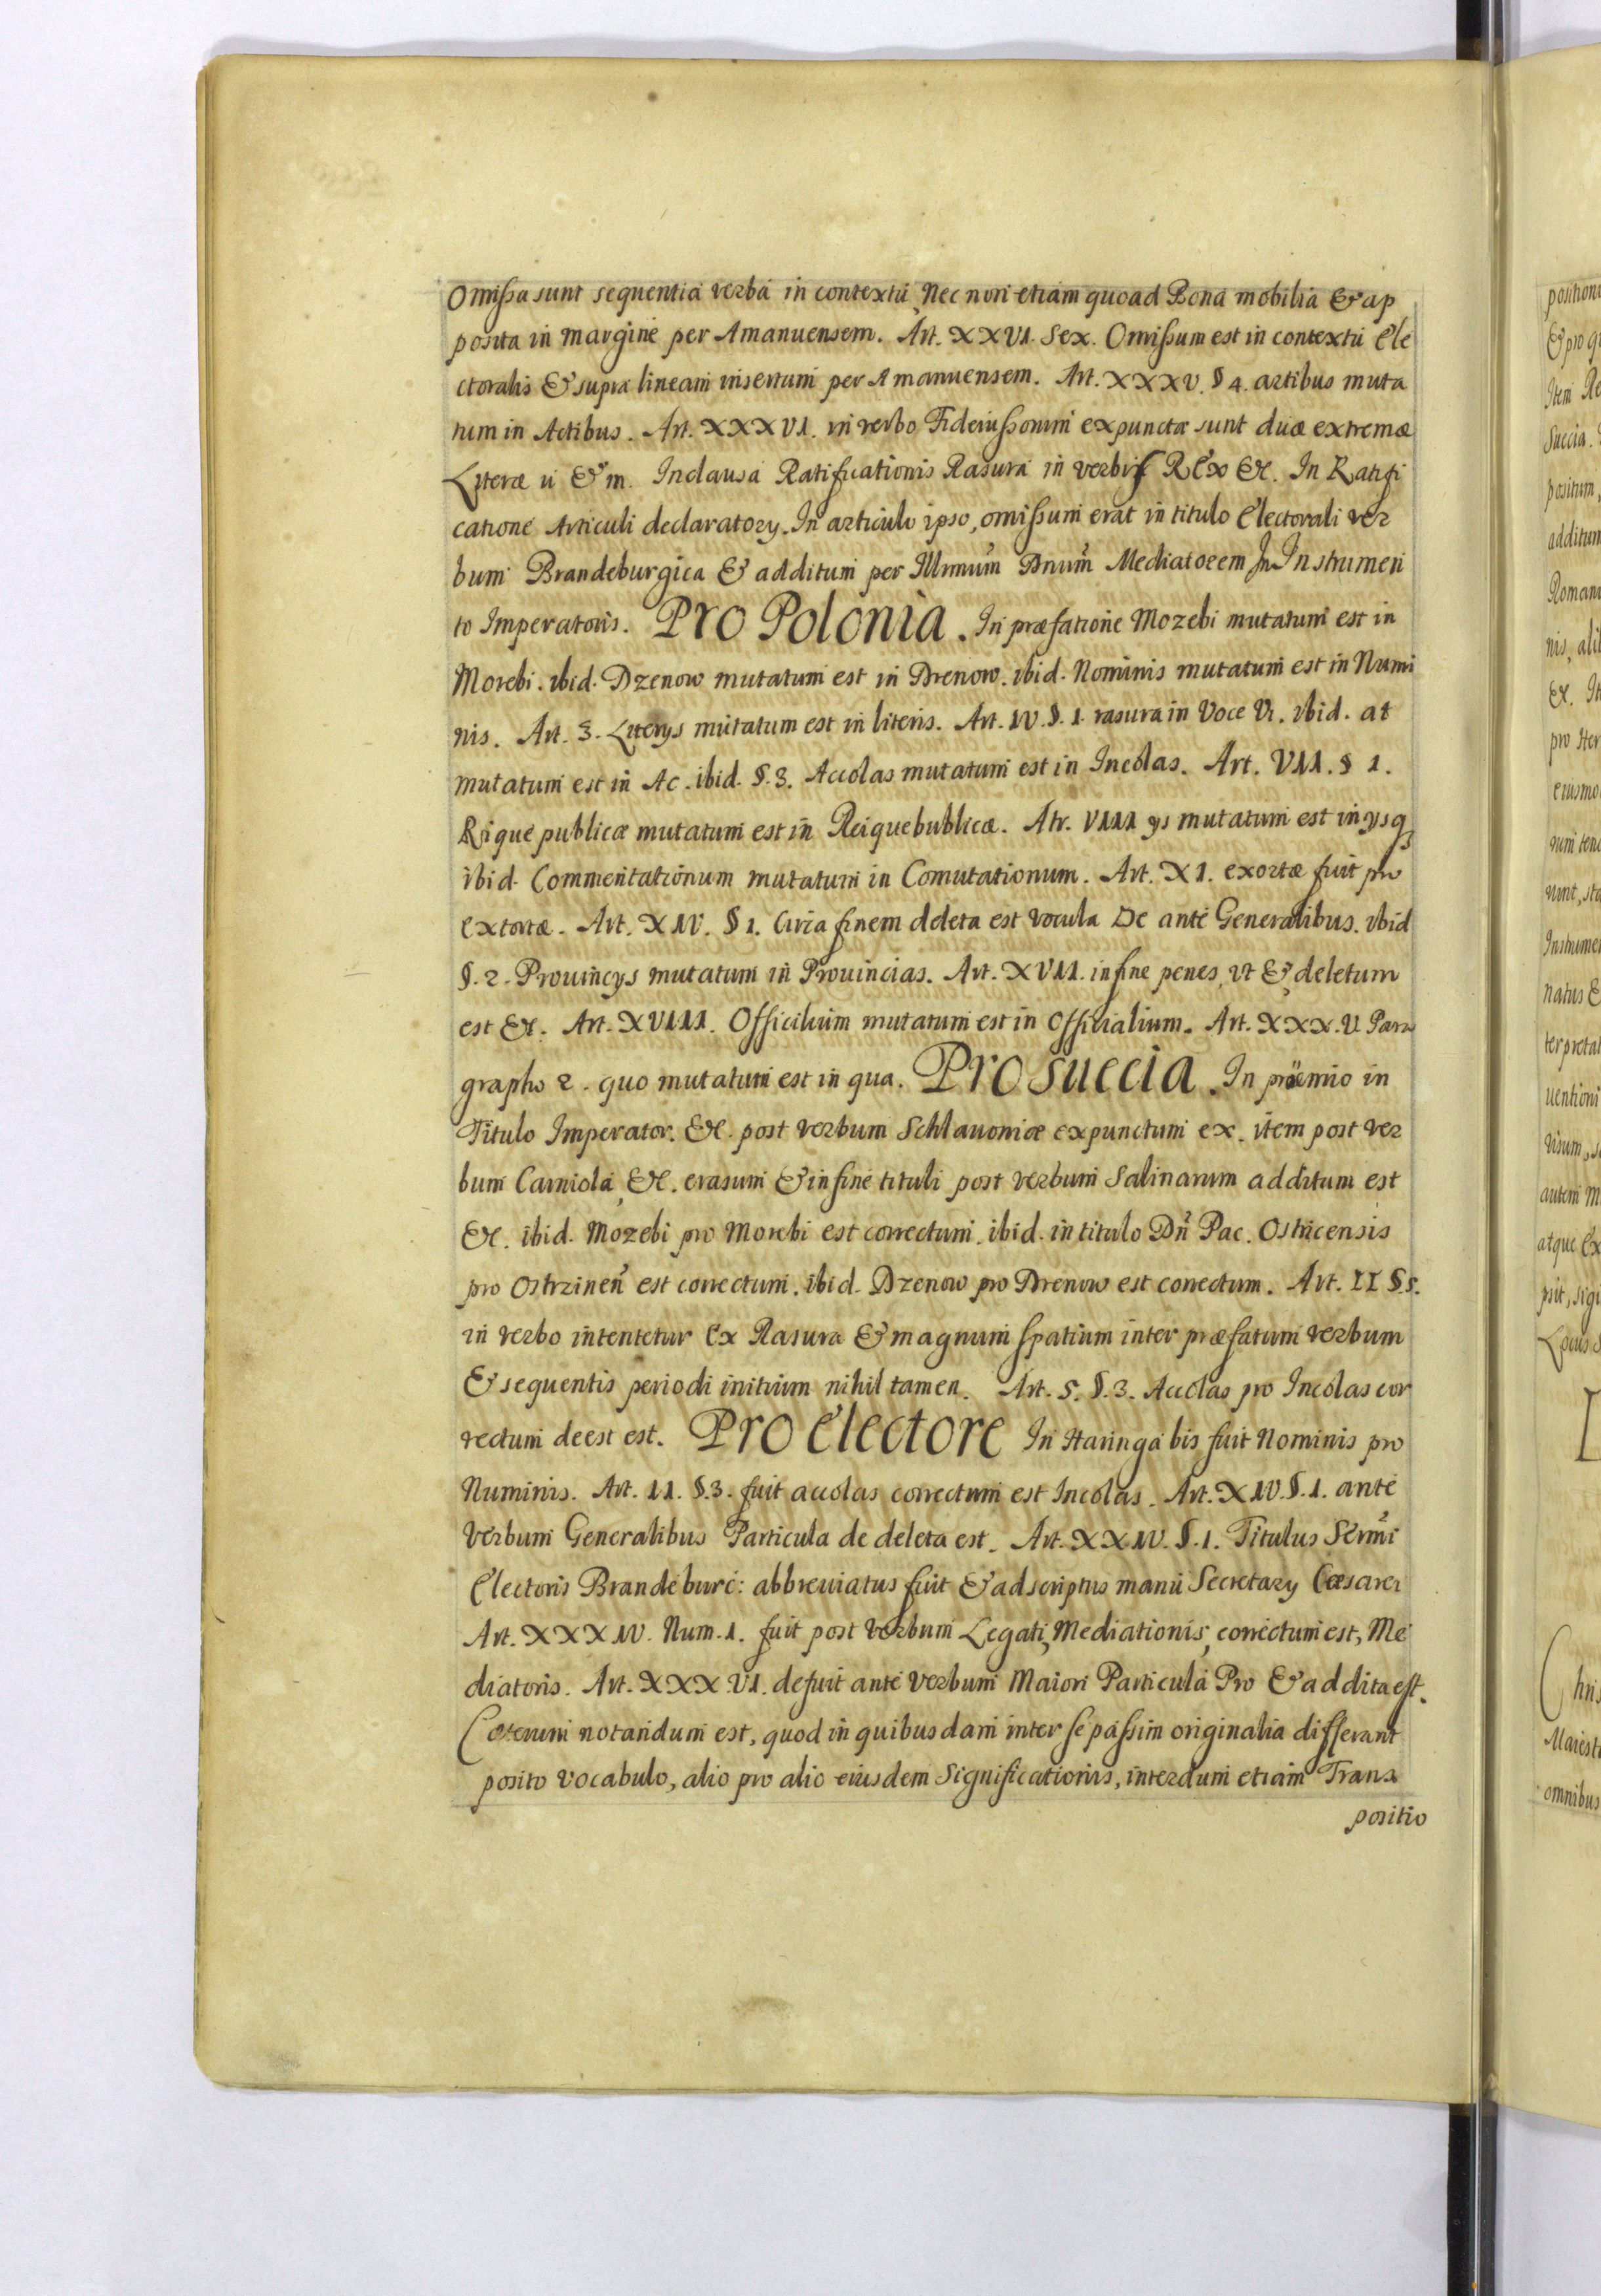 Omissa sunt sequentia verba in contextu, Nec non etiam quoad Bona mobilia & ap
posita in margine per Amanuensem. Art. XXVI. Sex. Omissum est in contextu Ele
ctoralis & supra lineam insertum per Amanuensem. Art. XXXV. § 4. artibus muta
tum in Actibus. Art. XXXVI. in verbo Fideiussorum expunctæ sunt duæ extremæ
Literæ u & m. In clausa Ratificationis Rasura in verbis Rex &c. In Ratifi
catione Articuli declaratory. In articulo ipso, omissum erat in titulo Electorali ver
bum Brandeburgica & additum per Illmum Dnum Mediatorem In Instrumen
to Imperatoris. Pro Polonia. In præfatione Mozebi mutatum est in
Morebi. ibid. Dzenow mutatum est in Drenow. ibid. Nominis mutatum est in Numi
nis. Art. 3. Literys mutatum est in literis. Art. IV. §. 1. rasura in Voce Vi. ibid. at
mutatum est in Ac. ibid. §. 3. Accolas mutatum est in Incolas. Art. VII. § 1.
Rique publicæ mutatum est in Reiquebublicæ. Atr. VIII ys mutatum est in ysq3
ibid. Commentationum mutatum in Comutationum. Art. XI. exortæ fuit pro
extortæ. Art. XIV. § 1. Circa finem deleta est vocula De ante Generalibus. ibid
§. 2. Prouincys mutatum in Prouincias. Art. XVII. in fine penes, vt & deletum
est &c. Art. XVIII. Officilium mutatum est in Officialium. Art. XXX.V. Para
grapho 2. quo mutatum est in qua. Pro Suecia. In proëmio in
Titulo Imperator. &c. post verbum Schlauoniæ expunctum ex. item post ver
bum Carniola, &c. erasum & in fine tituli post verbum Salinarum additum est
&c. ibid. Mozebi pro Morebi est correctum. ibid. in titulo Dn Pac. Ostricensis
pro Ostrzinen est correctum. ibid. Dzenow pro Drenow est correctum. Art. II §. 5.
in verbo intentetur Ex Rasura & magnum spatium inter præfatum verbum
& sequentis periodi initium nihil tamen. Art. 5. §. 3. Accolas pro Incolas cor
rectum deest est. Pro Electore In Haringa bis fuit Nominis pro
Numinis. Art. II. §. 3. fuit accolas correctum est Incolas. Art. XIV. §. 1. ante
verbum Generalibus Particula de deleta est. Art. XXIV. §. 1. Titulus Sermi
Electoris Brandeburc: abbreuiatus fuit & adscriptus manu Secretary Cæsarei
Art. XXXIV. Num. 1. fuit post verbum Legati, Mediationis, correctum est, Me
diatoris. Art. XXX.VI. defuit ante verbum Maiori Particula Pro & addita est.
Cæterum notandum est, quod in quibusdam inter se passim originalia differant
posito vocabulo, alio pro alio eiusdem Significationis, interdum etiam Trans
positio